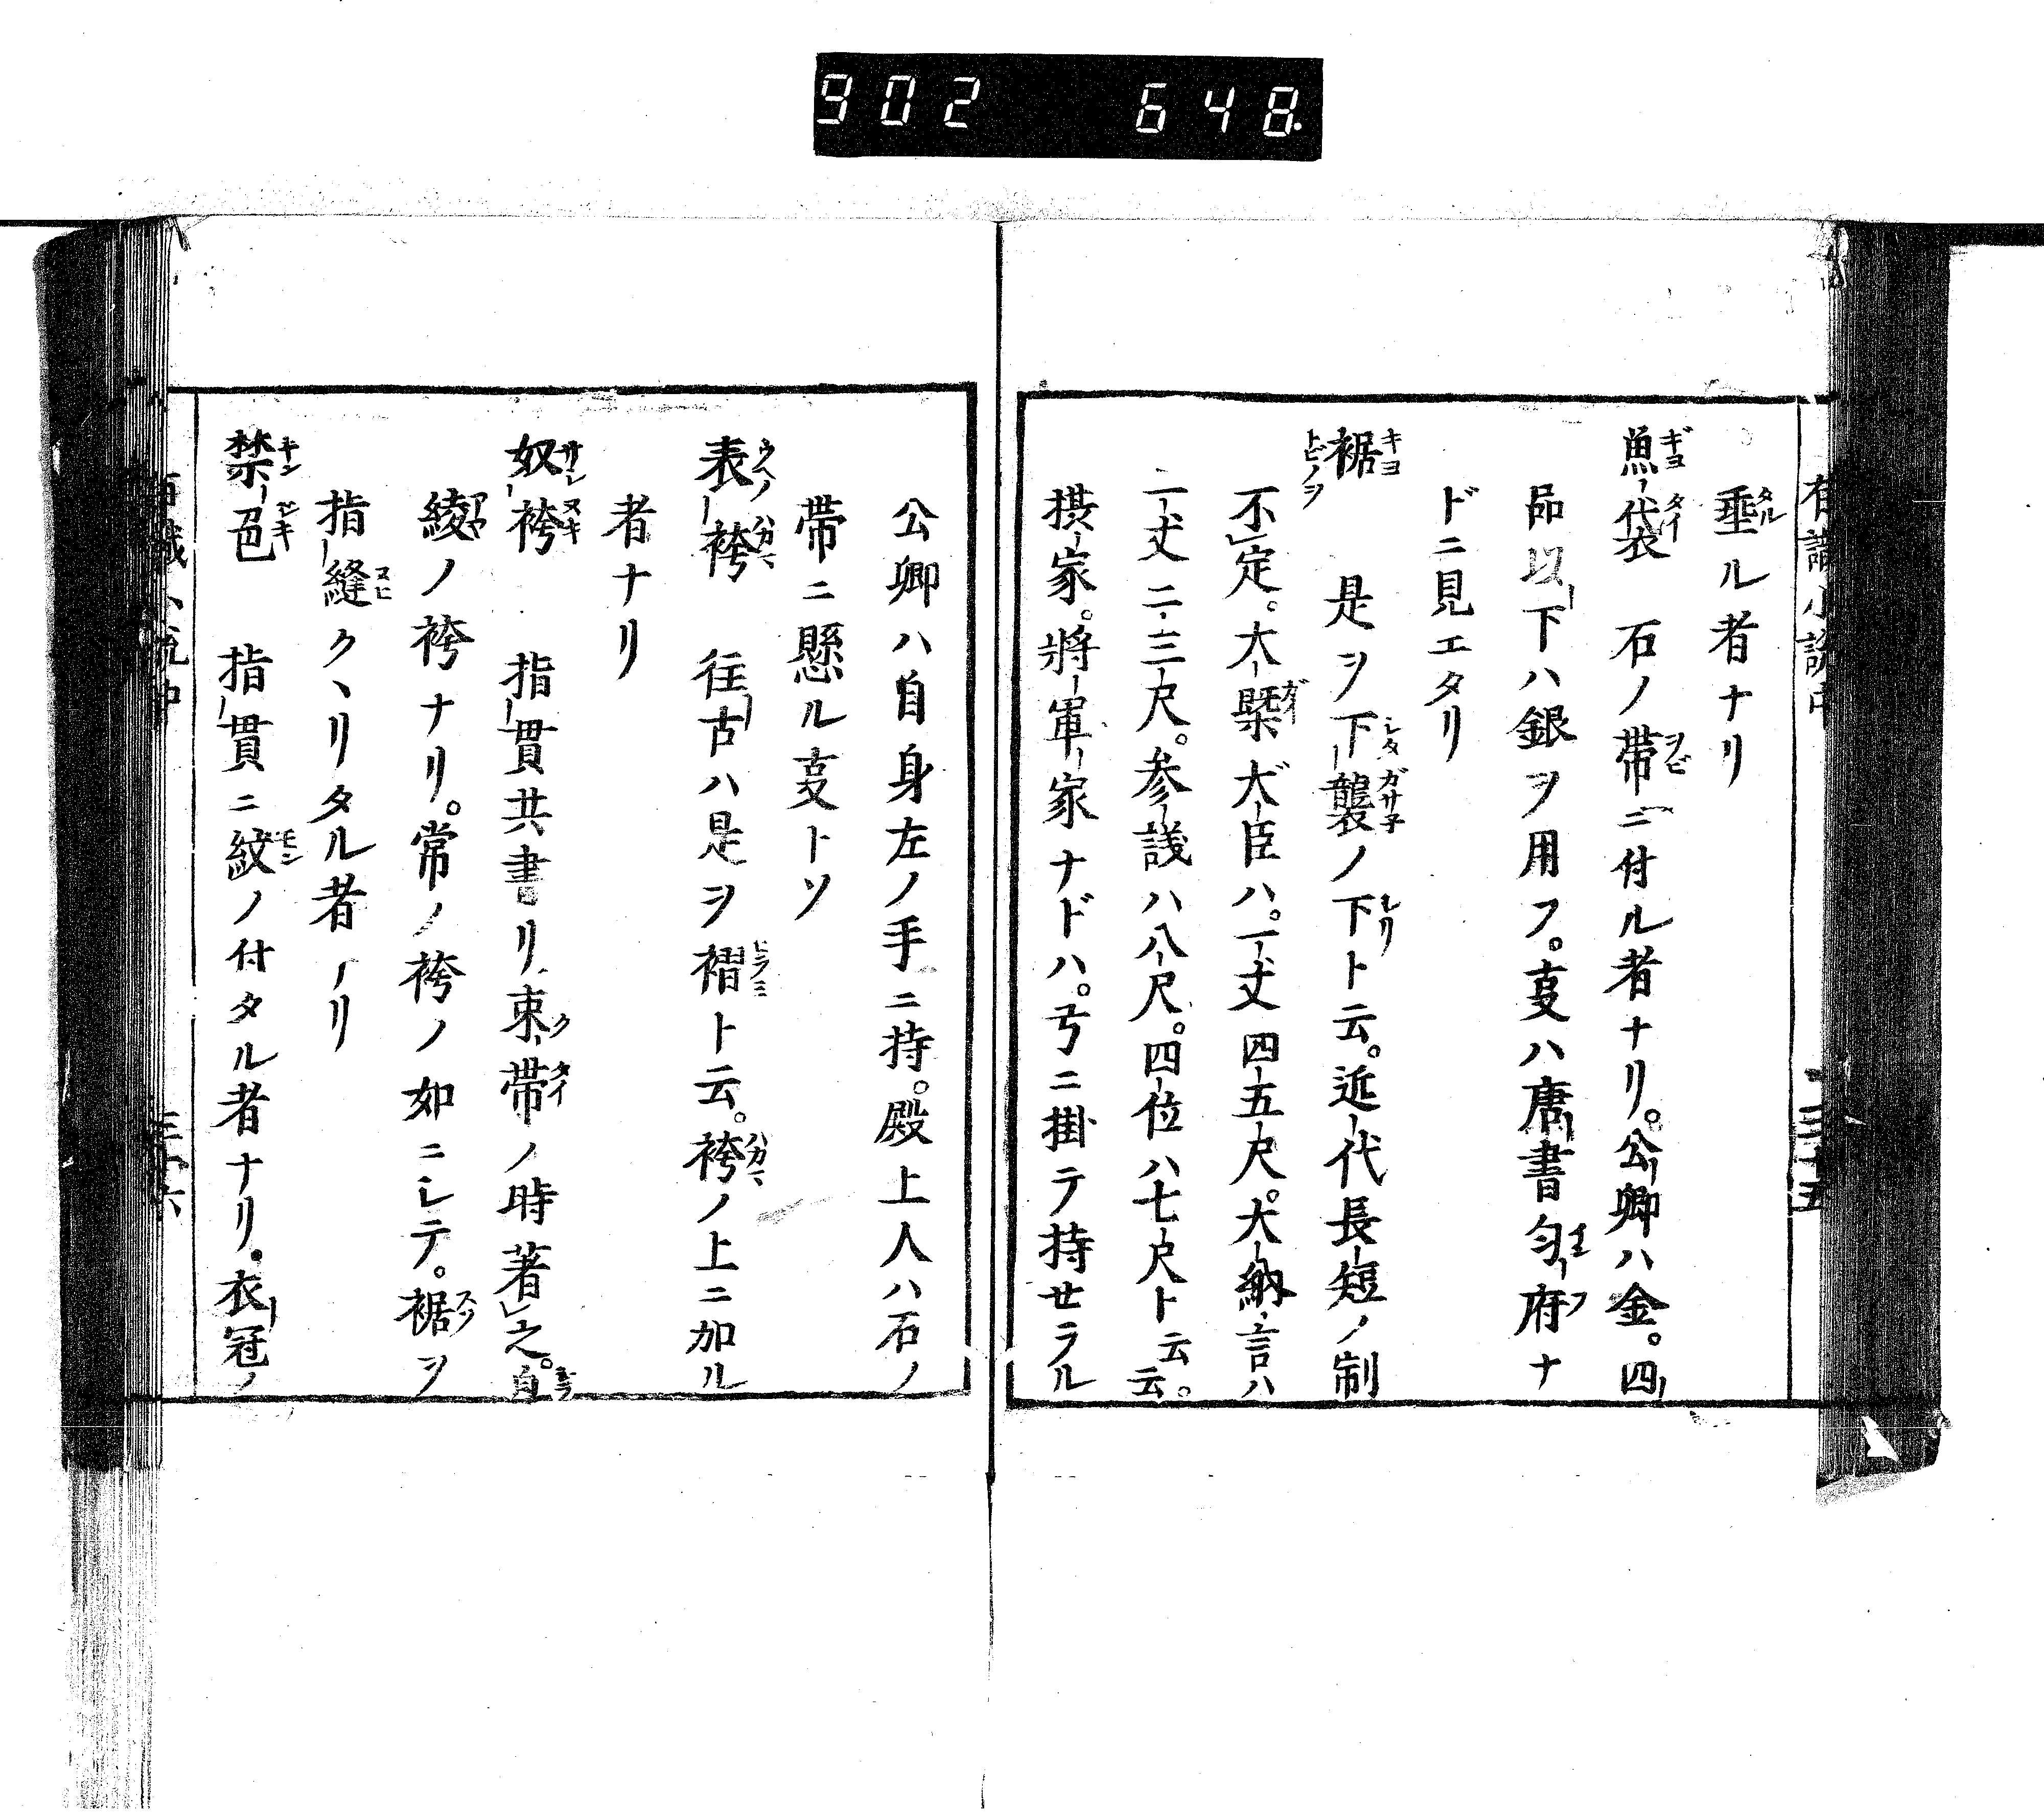 902 648
垂ル者ナリ
魚袋 石ノ帶ニ付ル者ナリ。公卿ハ金。四
品以下ハ銀ヲ用フ。㕝ハ唐書匀府ナ
ドニ見エタリ
裾 是ヲ下襲ノ下ト云。近代長短ノ制
不定。大槩大臣ハ。一丈四五尺。大納言ハ
一丈二三尺。参議ハ八尺。四位ハ七尺ト云云。
摂家。將軍家ナドハ。弓ニ掛テ持セラル
公卿ハ自身左ノ手ニ持。殿上人ハ石ノ
帶ニ懸ル㕝トソ
表袴 往古ハ是ヲ褶ト云。袴ノ上ニ加ル
者ナリ
奴袴 指貫共書リ束帶ノ時著之。自
綾ノ袴ナリ。常ノ袴ノ如ニシテ。裾ヲ
指縫クヽリタル者ノリ
禁色 指貫ニ紋ノ付タル者ナリ。衣冠ノ